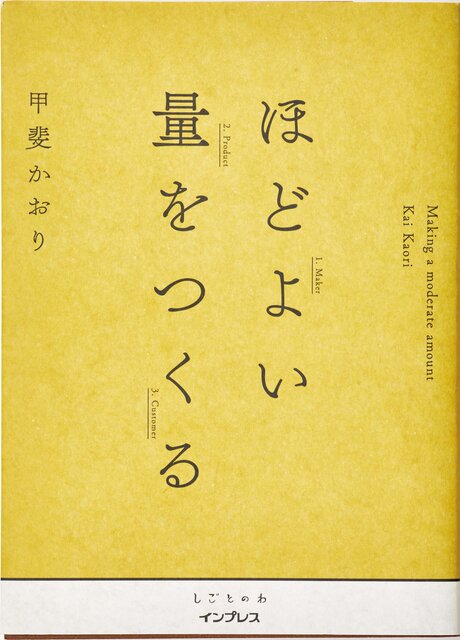 Making a moderate amount
Kai Kaori
ほどよい
1. Maker
量をつくる
2. Product
3. Customer
甲斐かおり
しごとのわ
インプレス